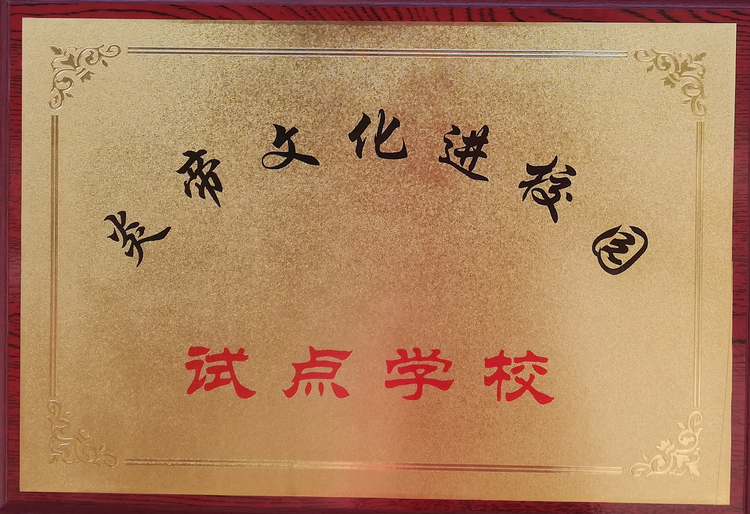 炎帝文化进校园
试点学校